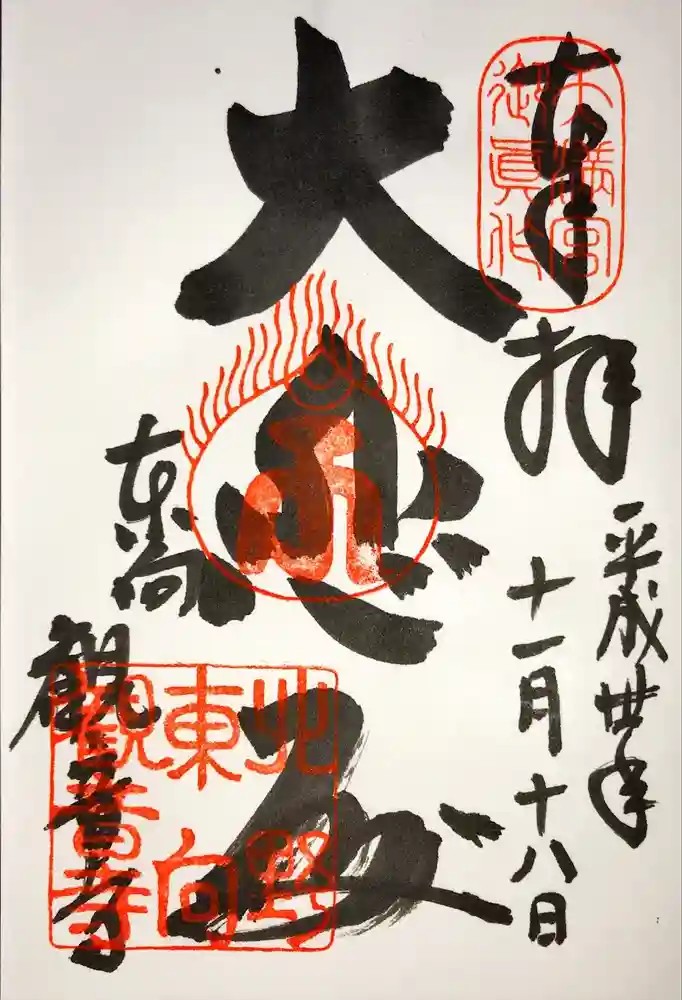 奉拝
天満宮
御眞作
平成丗年
十一月十八日
大悲殿
東向
観音寺
北野
東向
觀音寺